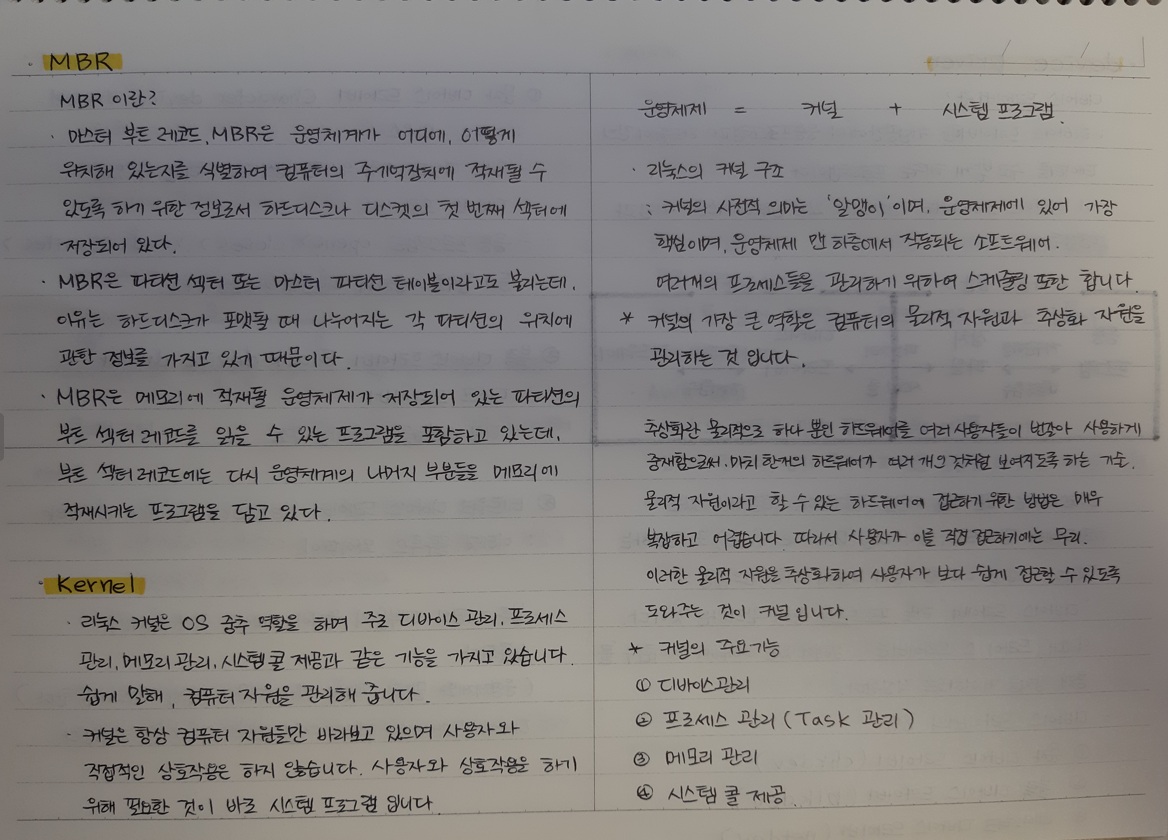 · MBR
MBR 이란?
· 마스터 부트 레코드, MBR은 운영체계가 어디에, 어떻게
위치해 있는지를 식별하여 컴퓨터의 주기억장치에 적재될 수
있도록 하기 위한 정보로서 하드디스크나 디스켓의 첫 번째 섹터에
저장되어 있다.
· MBR은 파티션 섹터 또는 마스터 파티션 테이블이라고도 불리는데,
이유는 하드디스크가 포맷될 때 나누어지는 각 파티션의 위치에
관한 정보를 가지고 있기 때문이다.
· MBR은 메모리에 적재될 운영체제가 저장되어 있는 파티션의
부트 섹터 레코드를 읽을 수 있는 프로그램을 포함하고 있는데,
부트 섹터 레코드에는 다시 운영체계의 나머지 부분들을 메모리에
적재시키는 프로그램을 담고 있다.
· Kernel
· 리눅스 커널은 OS 중추 역할을 하며 주로 디바이스 관리, 프로세스
관리, 메모리 관리, 시스템 콜 제공과 같은 기능을 가지고 있습니다.
쉽게 말해, 컴퓨터 자원을 관리해 줍니다.
· 커널은 항상 컴퓨터 자원들만 바라보고 있으며 사용자와
직접적인 상호작용은 하지 않습니다. 사용자와 상호작용을 하기
위해 필요한 것이 바로 시스템 프로그램 입니다.
운영체제 = 커널 + 시스템 프로그램.
· 리눅스의 커널 구조
: 커널의 사전적 의미는 '알맹이'이며, 운영체제에 있어 가장
핵심이며, 운영체제 맨 하층에서 작동되는 소프트웨어.
여러개의 프로세스들을 관리하기 위하여 스케줄링 또한 합니다.
* 커널의 가장 큰 역할은 컴퓨터의 물리적 자원과 추상화 자원을
관리하는 것 입니다.
추상화란 물리적으로 하나 뿐인 하드웨어를 여러 사용자들이 번갈아 사용하게
중재함으로써, 마치 한개의 하드웨어가 여러 개인 것처럼 보여지도록 하는 기술.
물리적 자원이라고 할 수 있는 하드웨어에 접근하기 위한 방법은 매우
복잡하고 어렵습니다. 따라서 사용자가 이를 직접 접근하기에는 무리.
이러한 물리적 자원을 추상화하여 사용자가 보다 쉽게 접근할 수 있도록
도와주는 것이 커널 입니다.
* 커널의 주요기능
① 디바이스관리
② 프로세스 관리 (Task 관리)
③ 메모리 관리
④ 시스템 콜 제공.